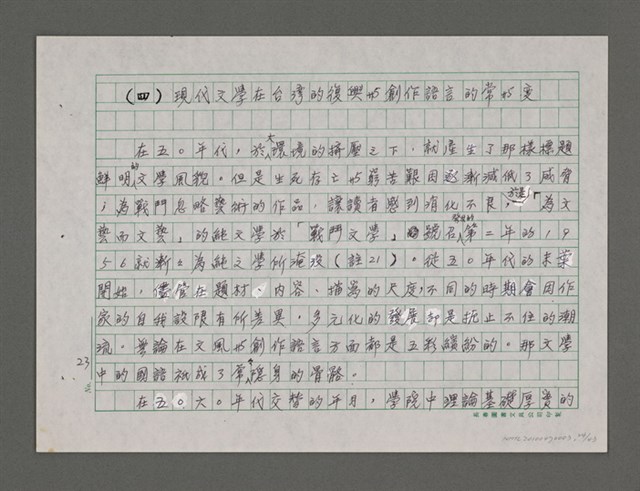 (四)現代文學在台灣的復興與創作語言的常與變
在五〇年代,於大環境的擠壓之下,就產生了那樣標題
鮮明的文學風貌。但是生死存亡與窮苦艱困逐漸減低了威脅
,為戰鬥忽略藝術的作品,讓讀者感到消化不良,於是「為文
藝而文藝」的純文學於「戰鬥文學」號召發起的第二年的19
56就漸漸為純文學所淹沒(註21)。從五〇年代的末葉
開始,儘管在題材、內容、描寫的尺度,不同的時期會因作
家的自我設限有所差異,多元化的發展卻是抵止不住的潮
流。無論在文風與創作語言方面都是五彩繽紛的。那文學
中的國語祇成了隱身的骨骼。
在五〇六〇年代交替的年月,學院中理論基礎厚實的
23